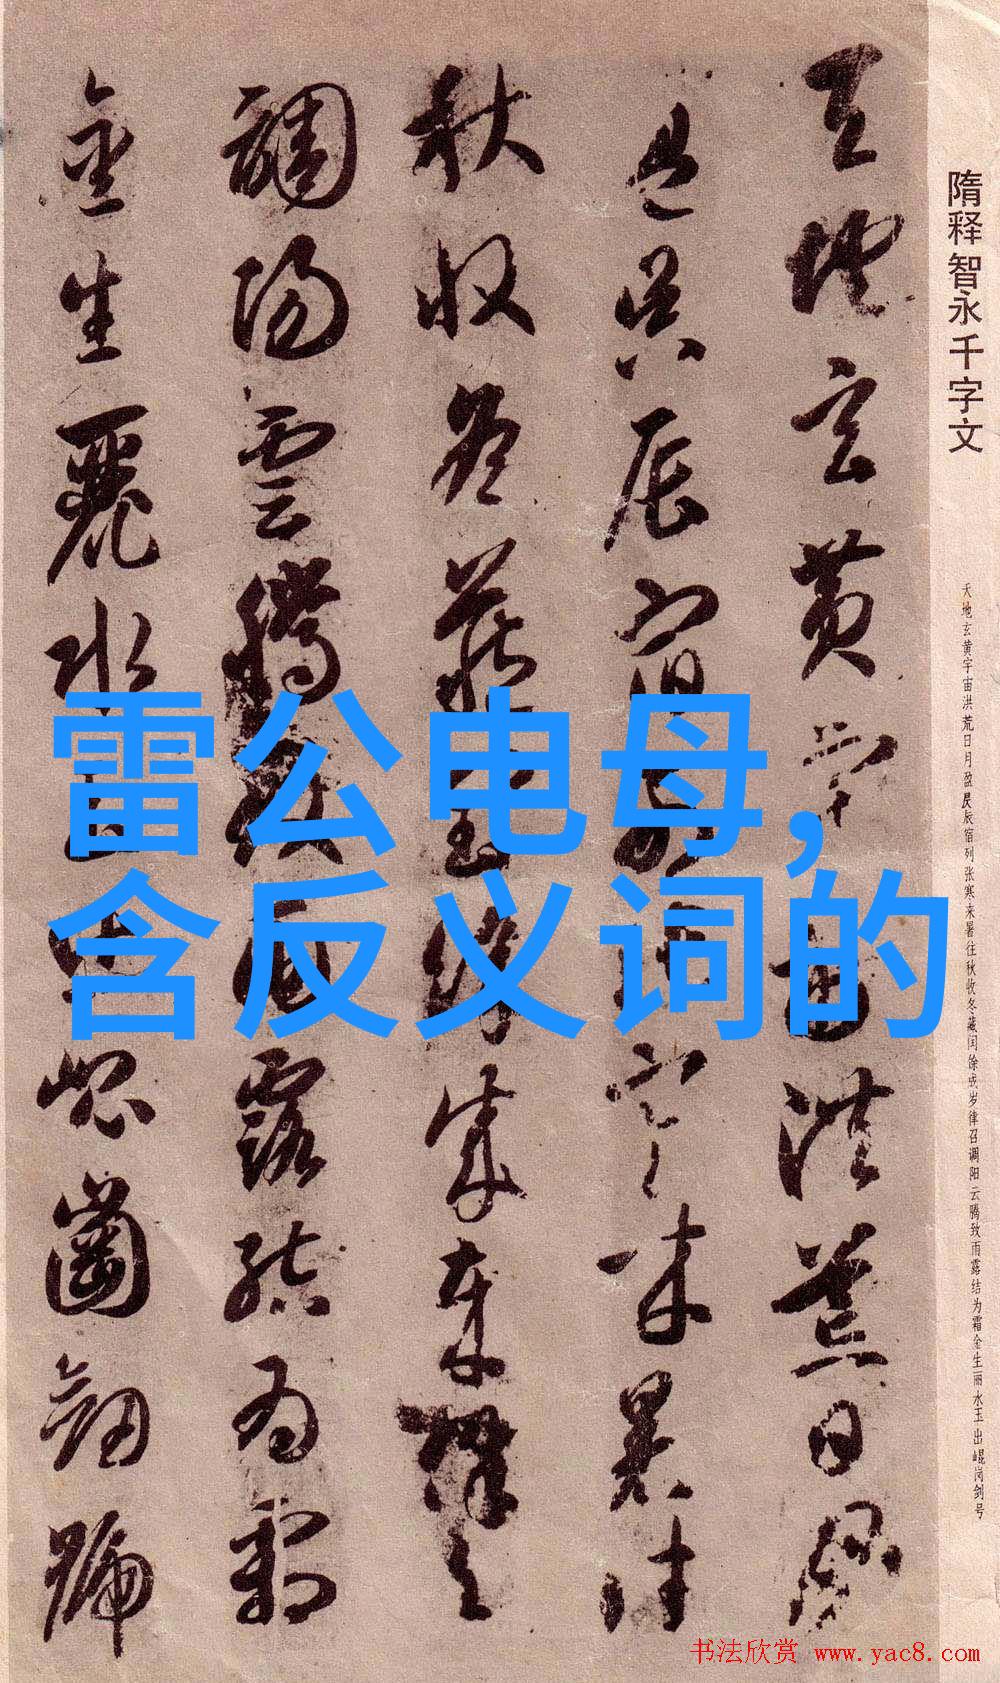 隋释智永千字文
天地玄黄宇宙洪荒日月盈昃辰宿列张寒来暑往秋收冬藏闰馀成岁律召调阳云腾致雨露结为霜金生丽水玉出崐岗剑号
天地玄黄宇宙洪荒日月
盈昃辰宿列張寒来暑往
秋收冬藏閏餘成歲律召
調陽雲騰致雨露結為霜
金生麗水玉出崐崗劍號
雷公电母,
含反义词的
书法欣赏 www.yac8.com